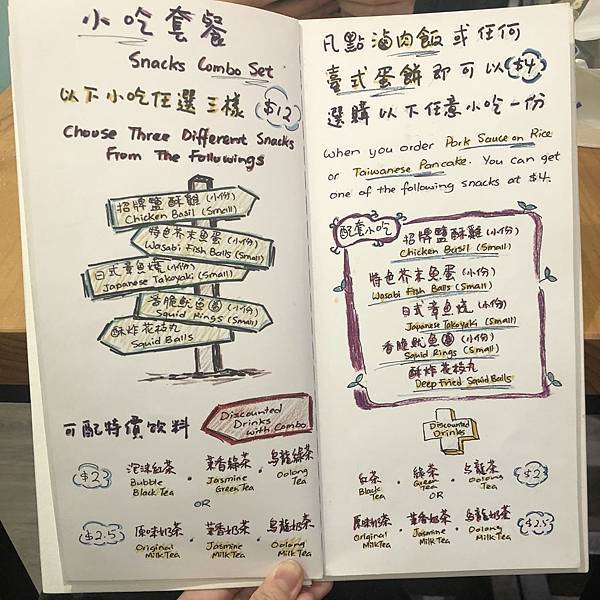 小吃套餐
Snacks Combo Set
以下小吃任選三樣 $12
Choose Three Different Snacks
From The Followings
招牌鹽酥雞 (小份)
Chicken Basil (Small)
特色芥末魚蛋 (小份)
Wasabi Fish Balls (Small)
日式章魚燒 (小份)
Japanese Takoyaki (Small)
香脆魷魚圈 (小份)
Squid Rings (Small)
酥炸花枝丸
Squid Balls
可配特價飲料
Discounted
Drinks
with Combo
$2 泡沫紅茶 · 茉香綠茶 · 烏龍綠茶
Bubble Black Tea Jasmine Green Tea Oolong Tea
OR
$2.5 原味奶茶 · 茉香奶茶 · 烏龍奶茶
Original Milk Tea Jasmine Milk Tea Oolong Milk Tea
凡點滷肉飯或任何
臺式蛋餅即可以 $4
選購以下任意小吃一份
When you order Pork Sauce on Rice
or Taiwanese Pancake. You can get
one of the following snacks at $4.
配套小吃
招牌鹽酥雞 (小份)
Chicken Basil (Small)
特色芥末魚蛋 (小份)
Wasabi Fish Balls (Small)
日式章魚燒 (小份)
Japanese Takoyaki (Small)
香脆魷魚圈 (小份)
Squid Rings (Small)
酥炸花枝丸
Deep Fried Squid Balls
Discounted
Drinks
紅茶 · 綠茶 · 烏龍茶 $2
Black Tea Green Tea Oolong Tea
OR
原味奶茶 · 茉香奶茶 · 烏龍奶茶 $2.5
Original Milk Tea Jasmine Milk Tea Oolong Milk Tea